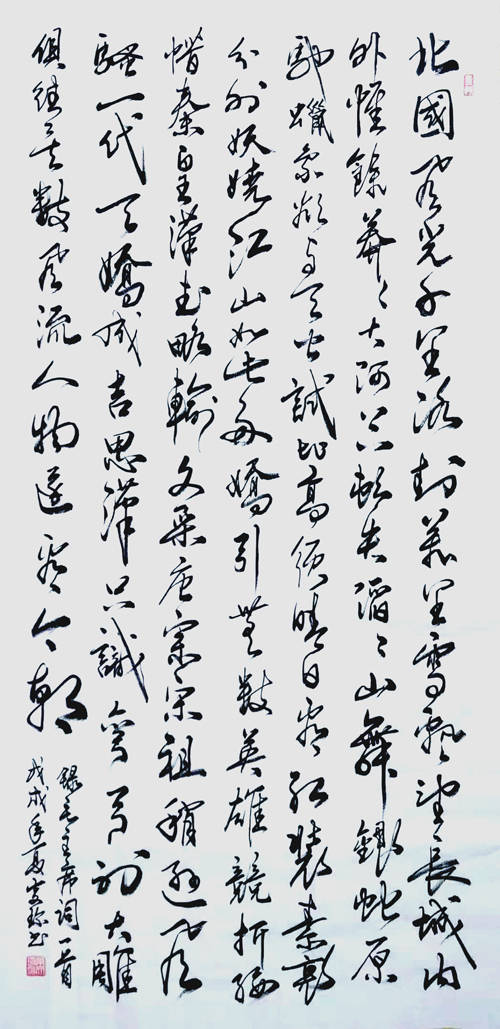 北國風光千里冰封萬里雪飄望長城内
外惟餘莽々大河上下頓失滔々山舞銀蛇原
馳蠟象欲与天公試比高須晴日看紅裝素裹
分外妖嬈江山如此多嬌引無數英雄競折腰
惜秦皇漢武略輸文采唐宗宋祖稍遜風
騷一代天嬌成吉思漢只識彎弓射大雕
俱往矣數風流人物還看今朝
録毛主席詞一首
戊戌年夏書